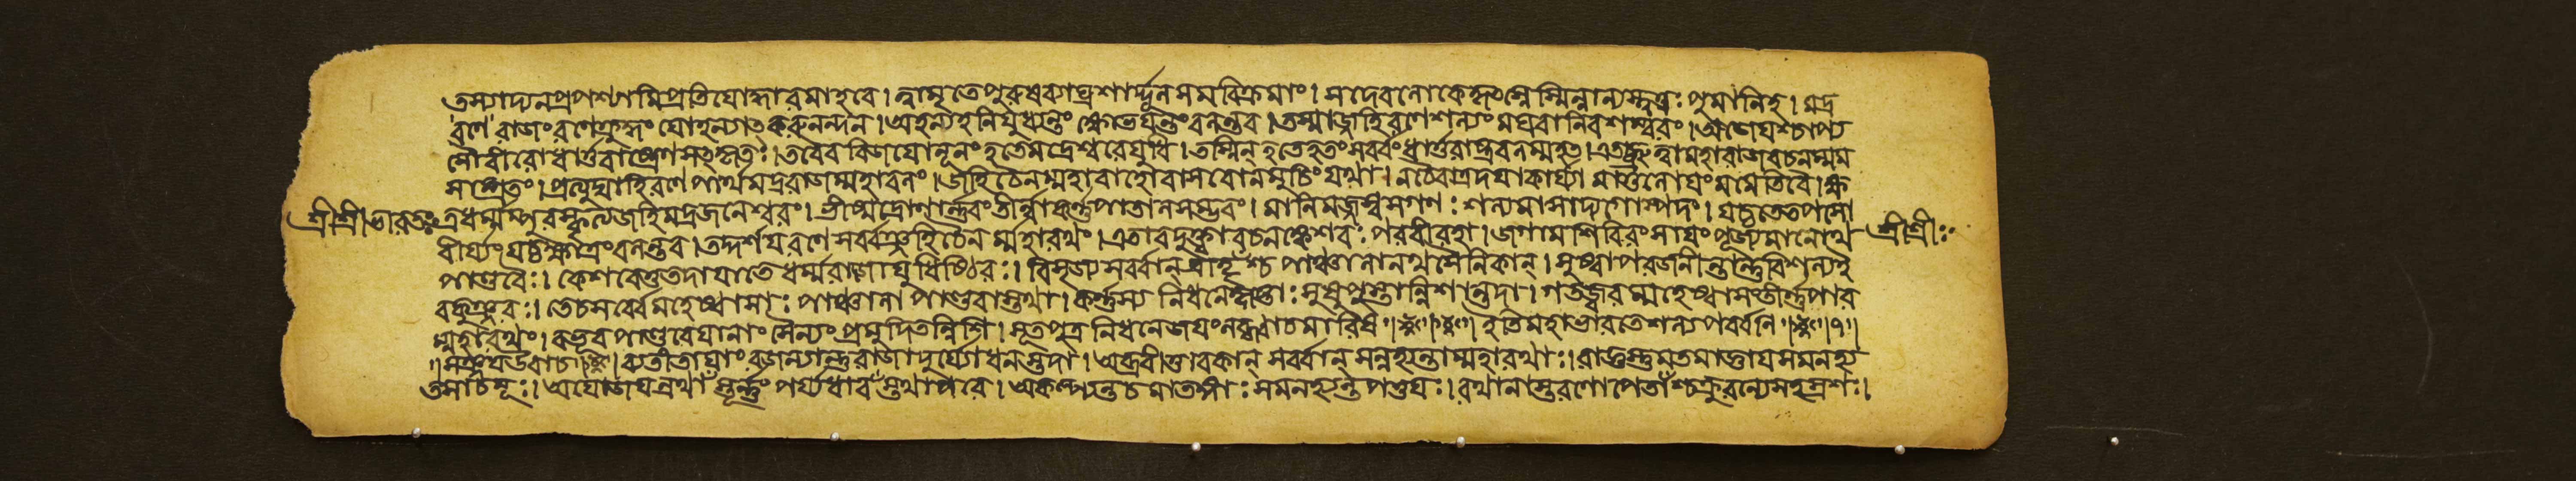 তস্যাদ্যনপ্রপশ্যামিপ্রতিযোদ্ধারমাহবে। ত্বামৃতেপুরুষব্যাঘ্রশার্দ্দূলসমবিক্রমাং। সদেবলোকেকৃৎস্নেস্মিন্নান্যস্ত্বত্তঃ পুমানিহ। মদ্র
রাজংরণেক্রুদ্ধং যোহন্যাৎকুরুনন্দন। অহন্যহনিযুধ্যন্তং ক্ষোভযন্তংবলন্তব। তস্মাজ্জহিরণেশল্যং মঘবানিবশম্বরং। অজেযশ্চাপ্য
সৌবীরোধার্ত্তরাষ্ট্রেণসৎকৃতঃ। তবৈববিজযোনূনং হতেমদ্রেশ্বরেযুধি। তস্মিন্ হতেহতংসর্ব্বংধার্ত্তরাষ্ট্রবলম্মহৎ। এতচ্ছ্রুত্বামহারাজবচনম্মম
সাম্প্রতং। প্রত্যুদ্যাহিরণেপার্থমদ্ররাজম্মহাবলং। জহিচৈনম্মহাবাহোবাসবোনমুচিংযথা। নচৈবাত্রদযাকার্য্যা মাতুলোযংমমেতিবৈ। ক্ষ
শ্রীশ্রীভারতঃ ত্রধর্ম্মম্পুরস্কৃত্যজহিমদ্রজনেশ্বরং। ভীষ্মদ্রোণার্ণ্ণবংতীর্ত্বাকর্ণ্ণপাতালসম্ভবং। মানিমজ্জস্বসগণঃ শল্যমাসাদ্যগোষ্পদং। যচ্চতেতপসো
বীর্য্যংযচ্চক্ষাত্রংবলন্তব। তদ্দর্শযরণেসর্ব্বঞ্জহিচৈনম্মহারথং। এতাবদুক্ত্বাবচনঙ্কেশবঃ পরবীরহা। জগামশিবিরংসাযংপূজ্যমানোথ শ্রীশ্রীঃ
পাণ্ডবৈঃ। কেশবেতুতদাযাতেধর্ম্মরাজোযুধিষ্ঠিরঃ। বিসৃজ্যসর্ব্বান্ ভ্রাতৄঁশ্চপাঞ্চালানথসৈনিকান্। সুষ্বাপরজনীন্তান্তুবিশল্যই
বকুঞ্জরঃ। তেচসর্ব্বেমহেষ্বাসাঃ পাঞ্চালাপাণ্ডবাস্তথা। কর্ণ্ণস্য নিধনেহৃষ্টাঃ সুষুপুস্তান্নিশান্তদা। গতজ্বরম্মহেষ্বাসন্তীর্ণ্ণপার
ম্মহারথং। বভূবপাণ্ডবেযানাংসৈন্যংপ্রমুদিতন্নিশি। সূতপুত্রনিধনেজযংলব্ধ্বাচমারিষ॥ ইতিমহাভারতেশল্যপর্ব্বণি॥৭॥
॥সঞ্জযউবাচ। ব্যতীতাযাংরজন্যান্তুরাজাদুর্য্যোধনস্তদা। অব্রবীত্তাবকান্ সর্ব্বান্ সন্নহ্যন্তাম্মহারথাঃ। রাজ্ঞস্তুমতমাজ্ঞাযসমনহ্য
তসাচমূঃ। অযোজযন্রথাঁস্তূর্ণ্ণং পর্য্যধাবঁস্তথাপরে। অকল্প্যন্তচমাতঙ্গাঃ সমনহ্যন্তপত্তযঃ। রথানাস্তরণোপেতাঁশ্চক্রুরন্যেসহস্রশঃ।